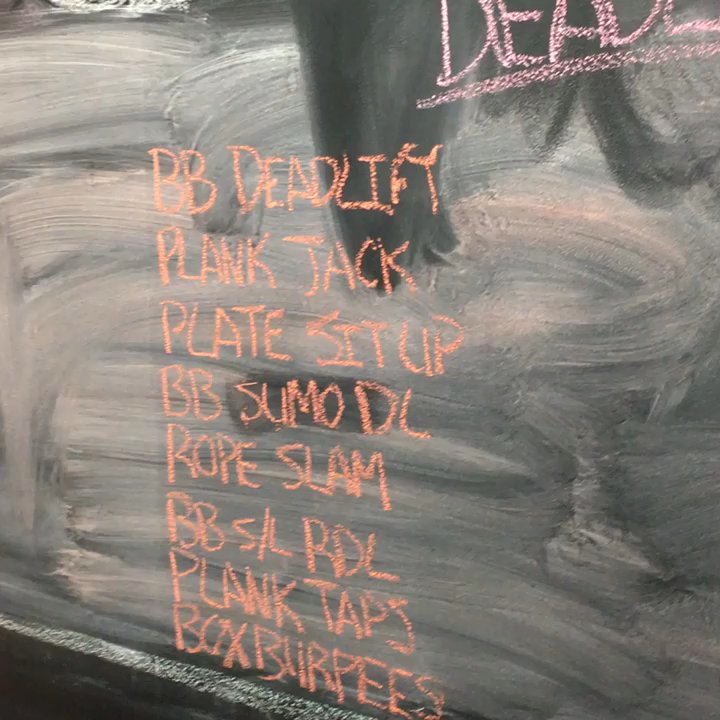 DEADL
BB DEADLIFT
PLANK JACK
PLATE SIT UP
BB SUMO DL
ROPE SLAM
BB S/L RDL
PLANK TAPS
BOX BURPEES